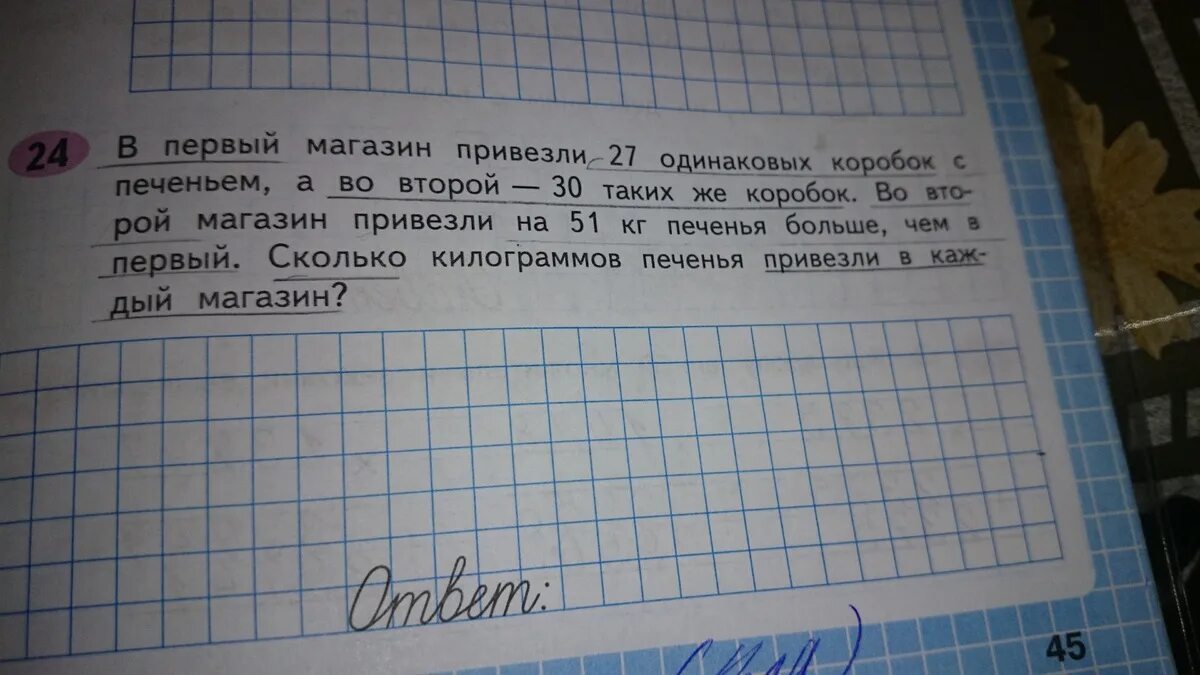 24 В первый магазин привезли 27 одинаковых коробок с
печеньем, а во второй — 30 таких же коробок. Во вто-
рой магазин привезли на 51 кг печенья больше, чем в
первый. Сколько килограммов печенья привезли в каж-
дый магазин?
Ответ:
45